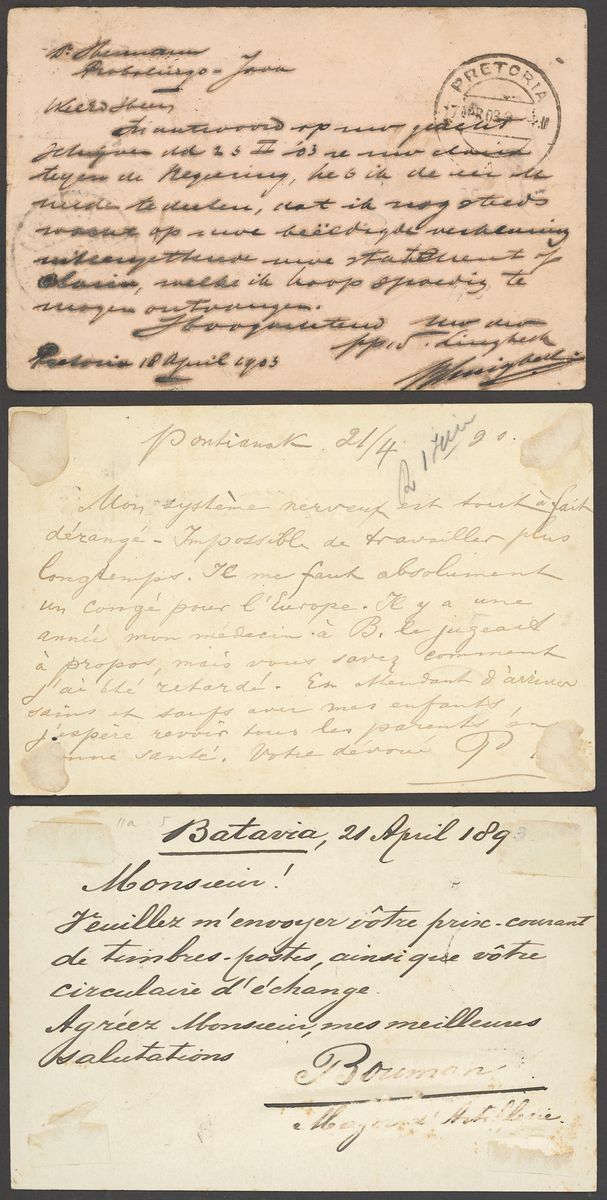 Dr Hermann
Probolingo - Java
PRETORIA
APR 03
Weled Heer,
In antwoord op uw geacht
schrijven dd 25 II '03 re uw claim
tegen de Regering, heb ik de eer U
mede te deelen, dat ik nog steeds
wacht op uwe beëedigde verklaring
uiteengettende uwe statement of
Claim, welke ik hoop spoedig te
mogen ontvangen.
Hoogachtend Uw dw
pp
Pretoria 18 April 1903
Pontianak. 21/4 90.
R 1 Juin
Mon système nerveux est tout à fait
dérangé - Impossible de travailler plus
longtemps. Il me faut absolument
un congé pour l'Europe. Il y a une
année mon médecin à B. le jugeait
à propos, mais vous savez comment
j'ai été retardé. En attendant d'arriver
sains et saufs avec mes enfants
j'espère revoir tous les parents en
onne santé. Votre dévoué P.
11a 5
Batavia, 21 April 189
Monsieur!
Veuillez m'envoyer vôtre prix-courant
de timbres-postes, ainsi que vôtre
circulaire d'échange.
Agréez Monsieur, mes meilleures
salutations
Bouman
Major d'Artillerie.